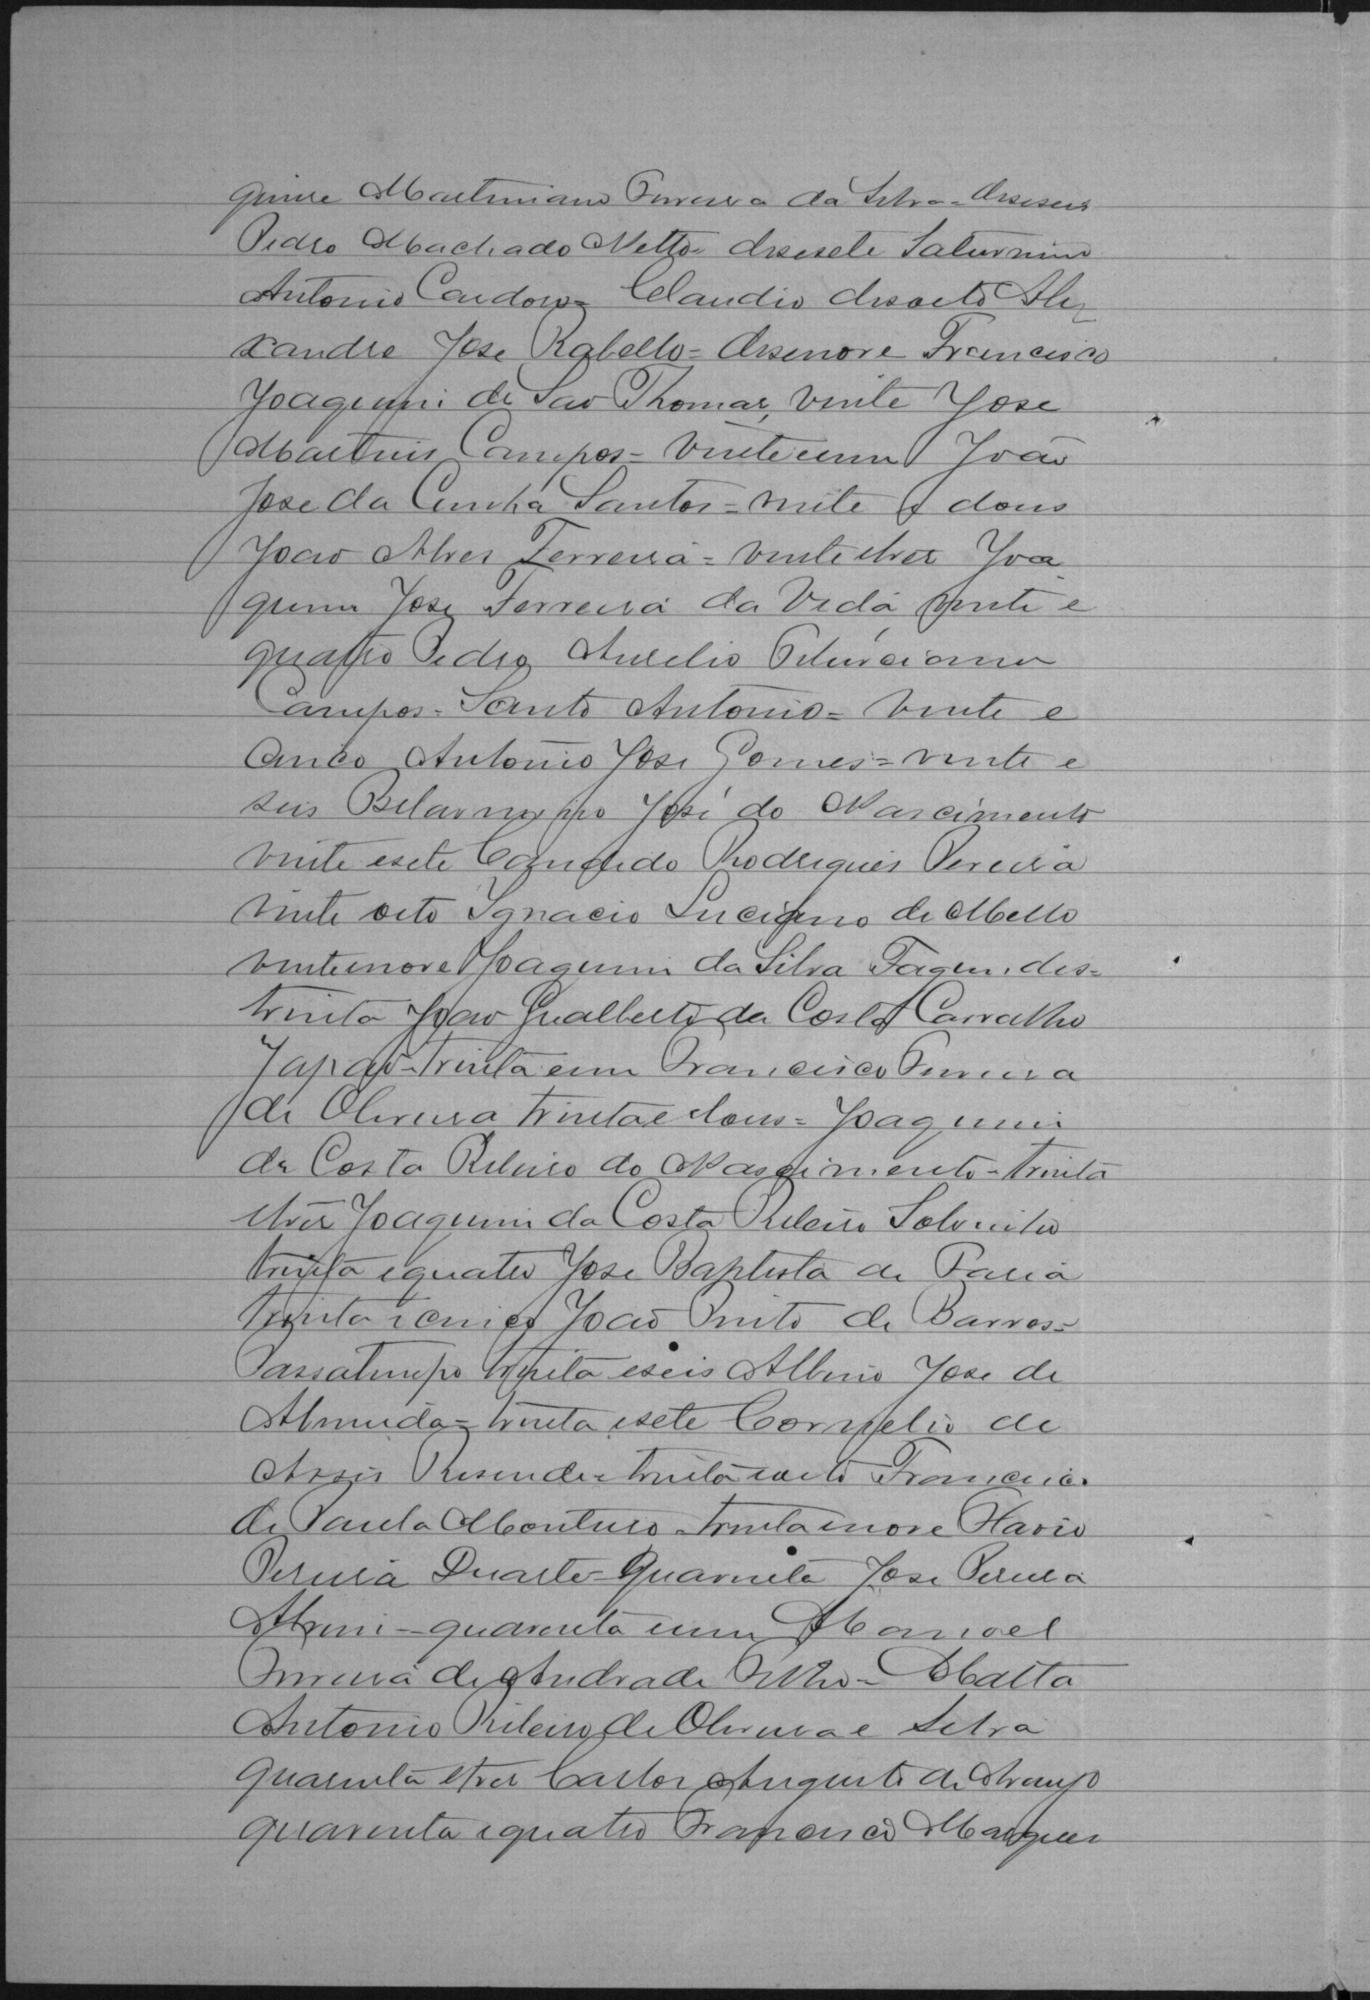 quinse Martiniano Ferreira da Silva = deseseis
Pedro Machado Netto = desesete Saturnino
Antonio Cardoso = Claudio desoito Ale
xandre Jose Rabello = desenove Francisco
Joaquim de Sao Thomas, vinte Jose
Martins Campos = vinte e um João
Jose da Cunha Santos = vinte e dous
Joao Alves Ferreira = vinte e tres Joa
quim Jose Ferreira da Veda vinte e
quatro Pedro Aurelio
Campos = Santo Antonio = vinte e
cinco Antonio Jose Gomes = vinte e
seis Belarmino José do Nascimento
vinte e sete Candido Rodrigues Pereira
vinte oito Ignacio Luciano de Mello
vinte e nove Joaquim da Silva Fagundes =
trinta Joao Gualberto da Costa Carvalho
Japão = trinta e um Francisco Ferreira
de Oliveira trinta e dous = Joaquim
da Costa Ribeiro do Nascimento = trinta
e tres Joaquim da Costa Ribeiro Sobrinho
trinta e quatro Jose Baptista de Faria
trinta e cinco João Pinto de Barros =
Passatempo trinta e seis Albino Jose de
Almeida = trinta e sete Cornelio de
Assis Resende = trinta e oito Francisco
de Paula Monteiro = trinta e nove Flavio
Pereira Duarte = quarenta Jose Pereira
quarenta e um Manoel
Ferreira de Andrade Filho = Matta
Antonio Ribeiro de Oliveira e Silva
quarenta e tres Carlos Augusto de Araujo
quarenta e quatro Francisco Marques